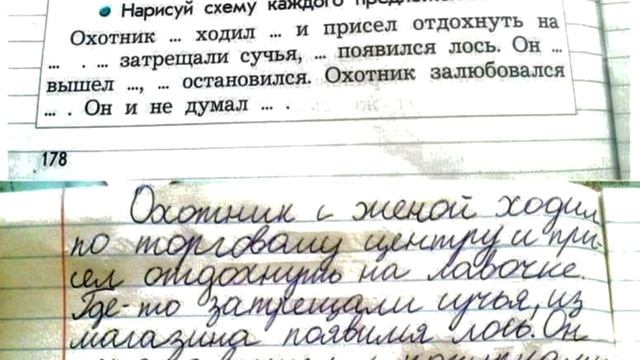 • Нарисуй схему каждого
Охотник ... ходил ... и присел отдохнуть на
... . ... затрещали сучья, ... появился лось. Он ...
вышел ..., ... остановился. Охотник залюбовался
... . Он и не думал ... .
178
Охотник с женой ходил
по торговому центру и при-
сел отдохнуть на лавочке.
Где-то затрещали сучья, из
магазина появился лось. Он